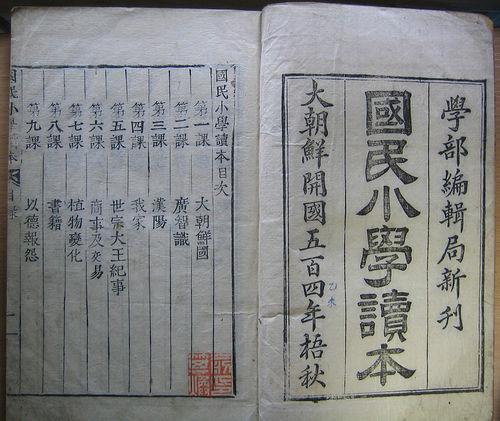 學部編輯局新刊
國民小學讀本
大朝鮮開國五百四年梧秋
乙未
國民小學讀本目次
第一課 大朝鮮國
第二課 廣智識
第三課 漢陽
第四課 我家
第五課 世宗大王紀事
第六課 商事及交易
第七課 植物變化
第八課 書籍
第九課 以德報怨